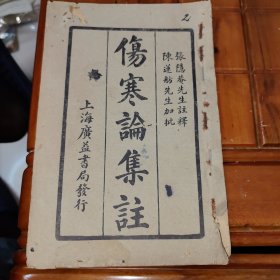 張隱菴先生註釋
陳蓮舫先生加批
傷寒論集註
上海廣益書局發行